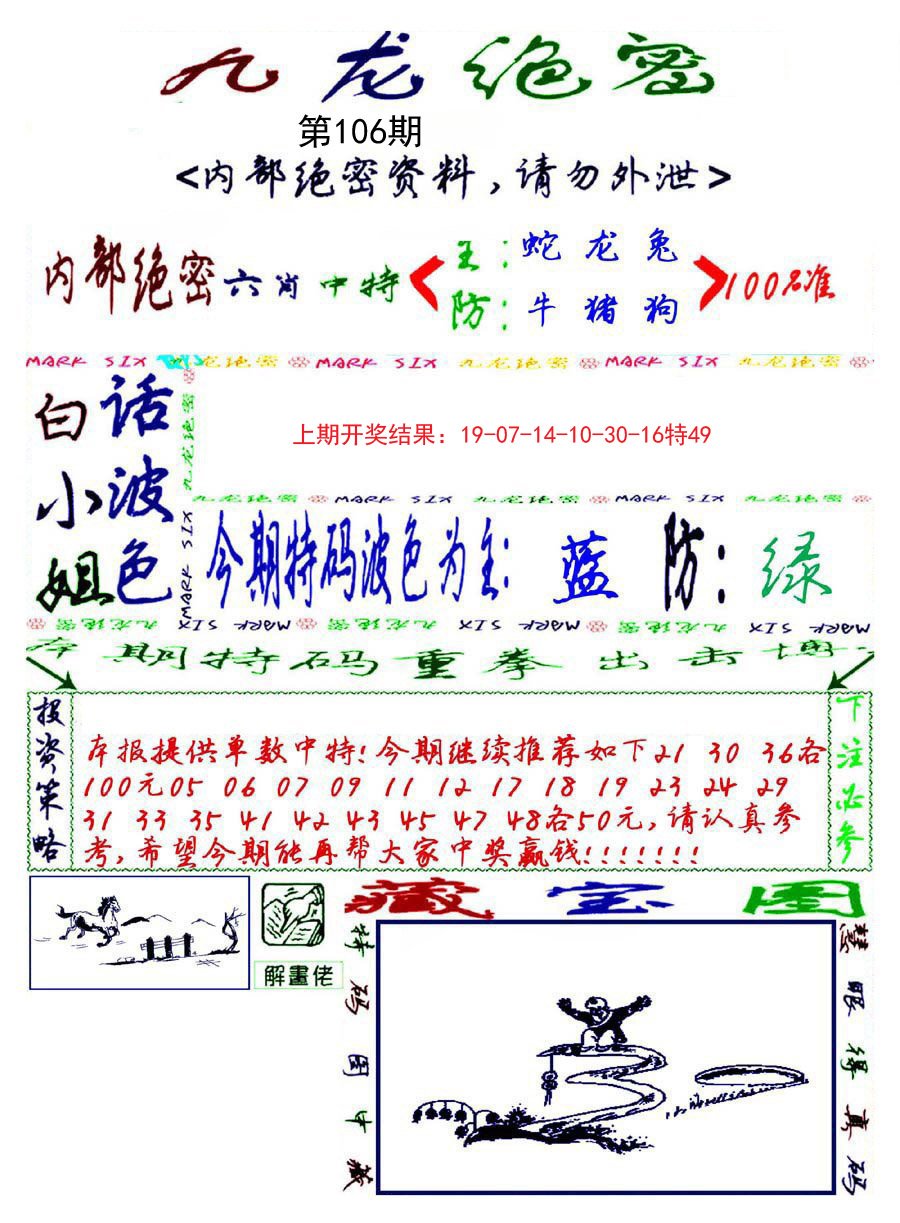 九龙绝密
第106期
<内部绝密资料,请勿外泄>
内部绝密六肖中特
主:蛇龙兔
防:牛猪狗
100%准
MARK SIX 九龙绝密 MARK SIX 九龙绝密 MARK SIX 九龙绝密
白小姐
话波色
九龙绝密
MARK SIX
上期开奖结果: 19-07-14-10-30-16特49
九龙绝密 MARK SIX 九龙绝密 MARK SIX 九龙绝密
今期特码波色为主: 蓝 防: 绿
九龙绝密 MARK SIX 九龙绝密 MARK SIX 九龙绝密 MARK SIX
本期特码重拳出击博
投资策略
本报提供单数中特!今期继续推荐如下21 30 36各
100元05 06 07 09 11 12 17 18 19 23 24 29
31 33 35 41 42 43 45 47 48各50元,请认真参
考,希望今期能再帮大家中奖赢钱!!!!!!!
下注必参
解畫佬
藏宝图
特码图中藏
慧眼得真码